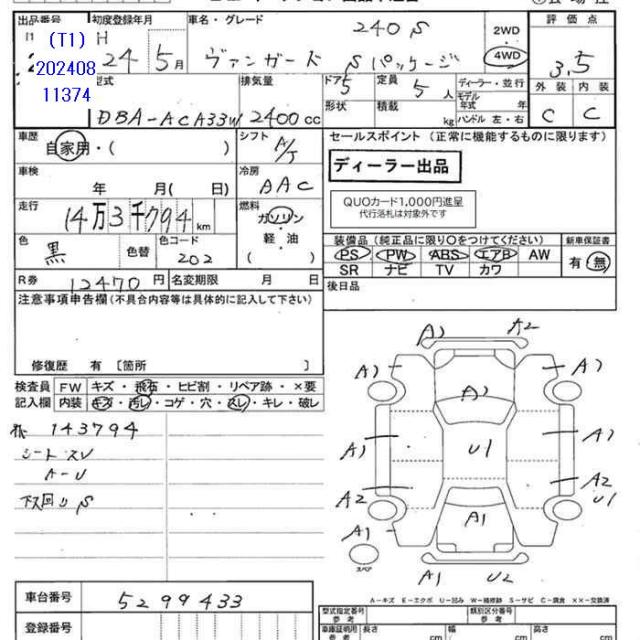 出品番号 初度登録年月 車名・グレード 240 S 2WD 評価点
(T1) H 24 5月 ヴァンガード Sパッケージ 4WD 3.5
202408 11374
型式 排気量 ドア 5 定員 5人 ディーラー・並行 外装 内装
DBA-ACA33W 2400cc 形状 積載 kg モデル年式 年 ハンドル 左・右 C C
車歴 自家用・( ) シフト A/T セールスポイント (正常に機能するものに限ります)
車検 年 月( 日) 冷房 AAC ディーラー出品
走行 14万3千794km 燃料 ガソリン・軽・油 ( ) QUOカード1,000円進呈
代行落札は対象外です
色 黒 色替 色コード 202 装備品 (純正品に限り○をつけてください) 新車保証書
PS PW ABS エアB AW 有 無
R券 12470円 名変期限 月 日 SR ナビ TV カワ
注意事項申告欄(不具合内容等は具体的に記入して下さい) 後日品
修復歴 有 〔箇所 〕
検査員 FW キズ・飛石・ヒビ割・リペア跡・×要
記入欄 内装 キズ・汚レ・コゲ・穴・スレ・キレ・破レ
143794
シート スレ
A-U
下回り S
A1 A2
A1 A1 A1
A1 U1 A1
A2 A2 U1
A1 A1
スペア
A1 U2
A-キズ E-エクボ U-凹み W-補修跡 S-サビ C-腐食 ××-交換済
車台番号 5299433
登録番号
型式指定番号 参考 類別区分番号 参考
車庫証明用 参考 長さ cm 幅 cm 高さ cm